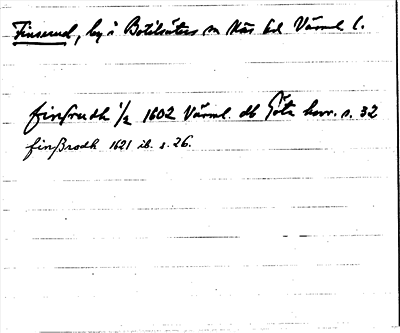 Finserud, by i Botilsäters sn Näs hd Värml l.
finsrudh 1/2 1602 Värml. db Göta hovr. s. 32
finßrodh 1621 ib. s. 26.